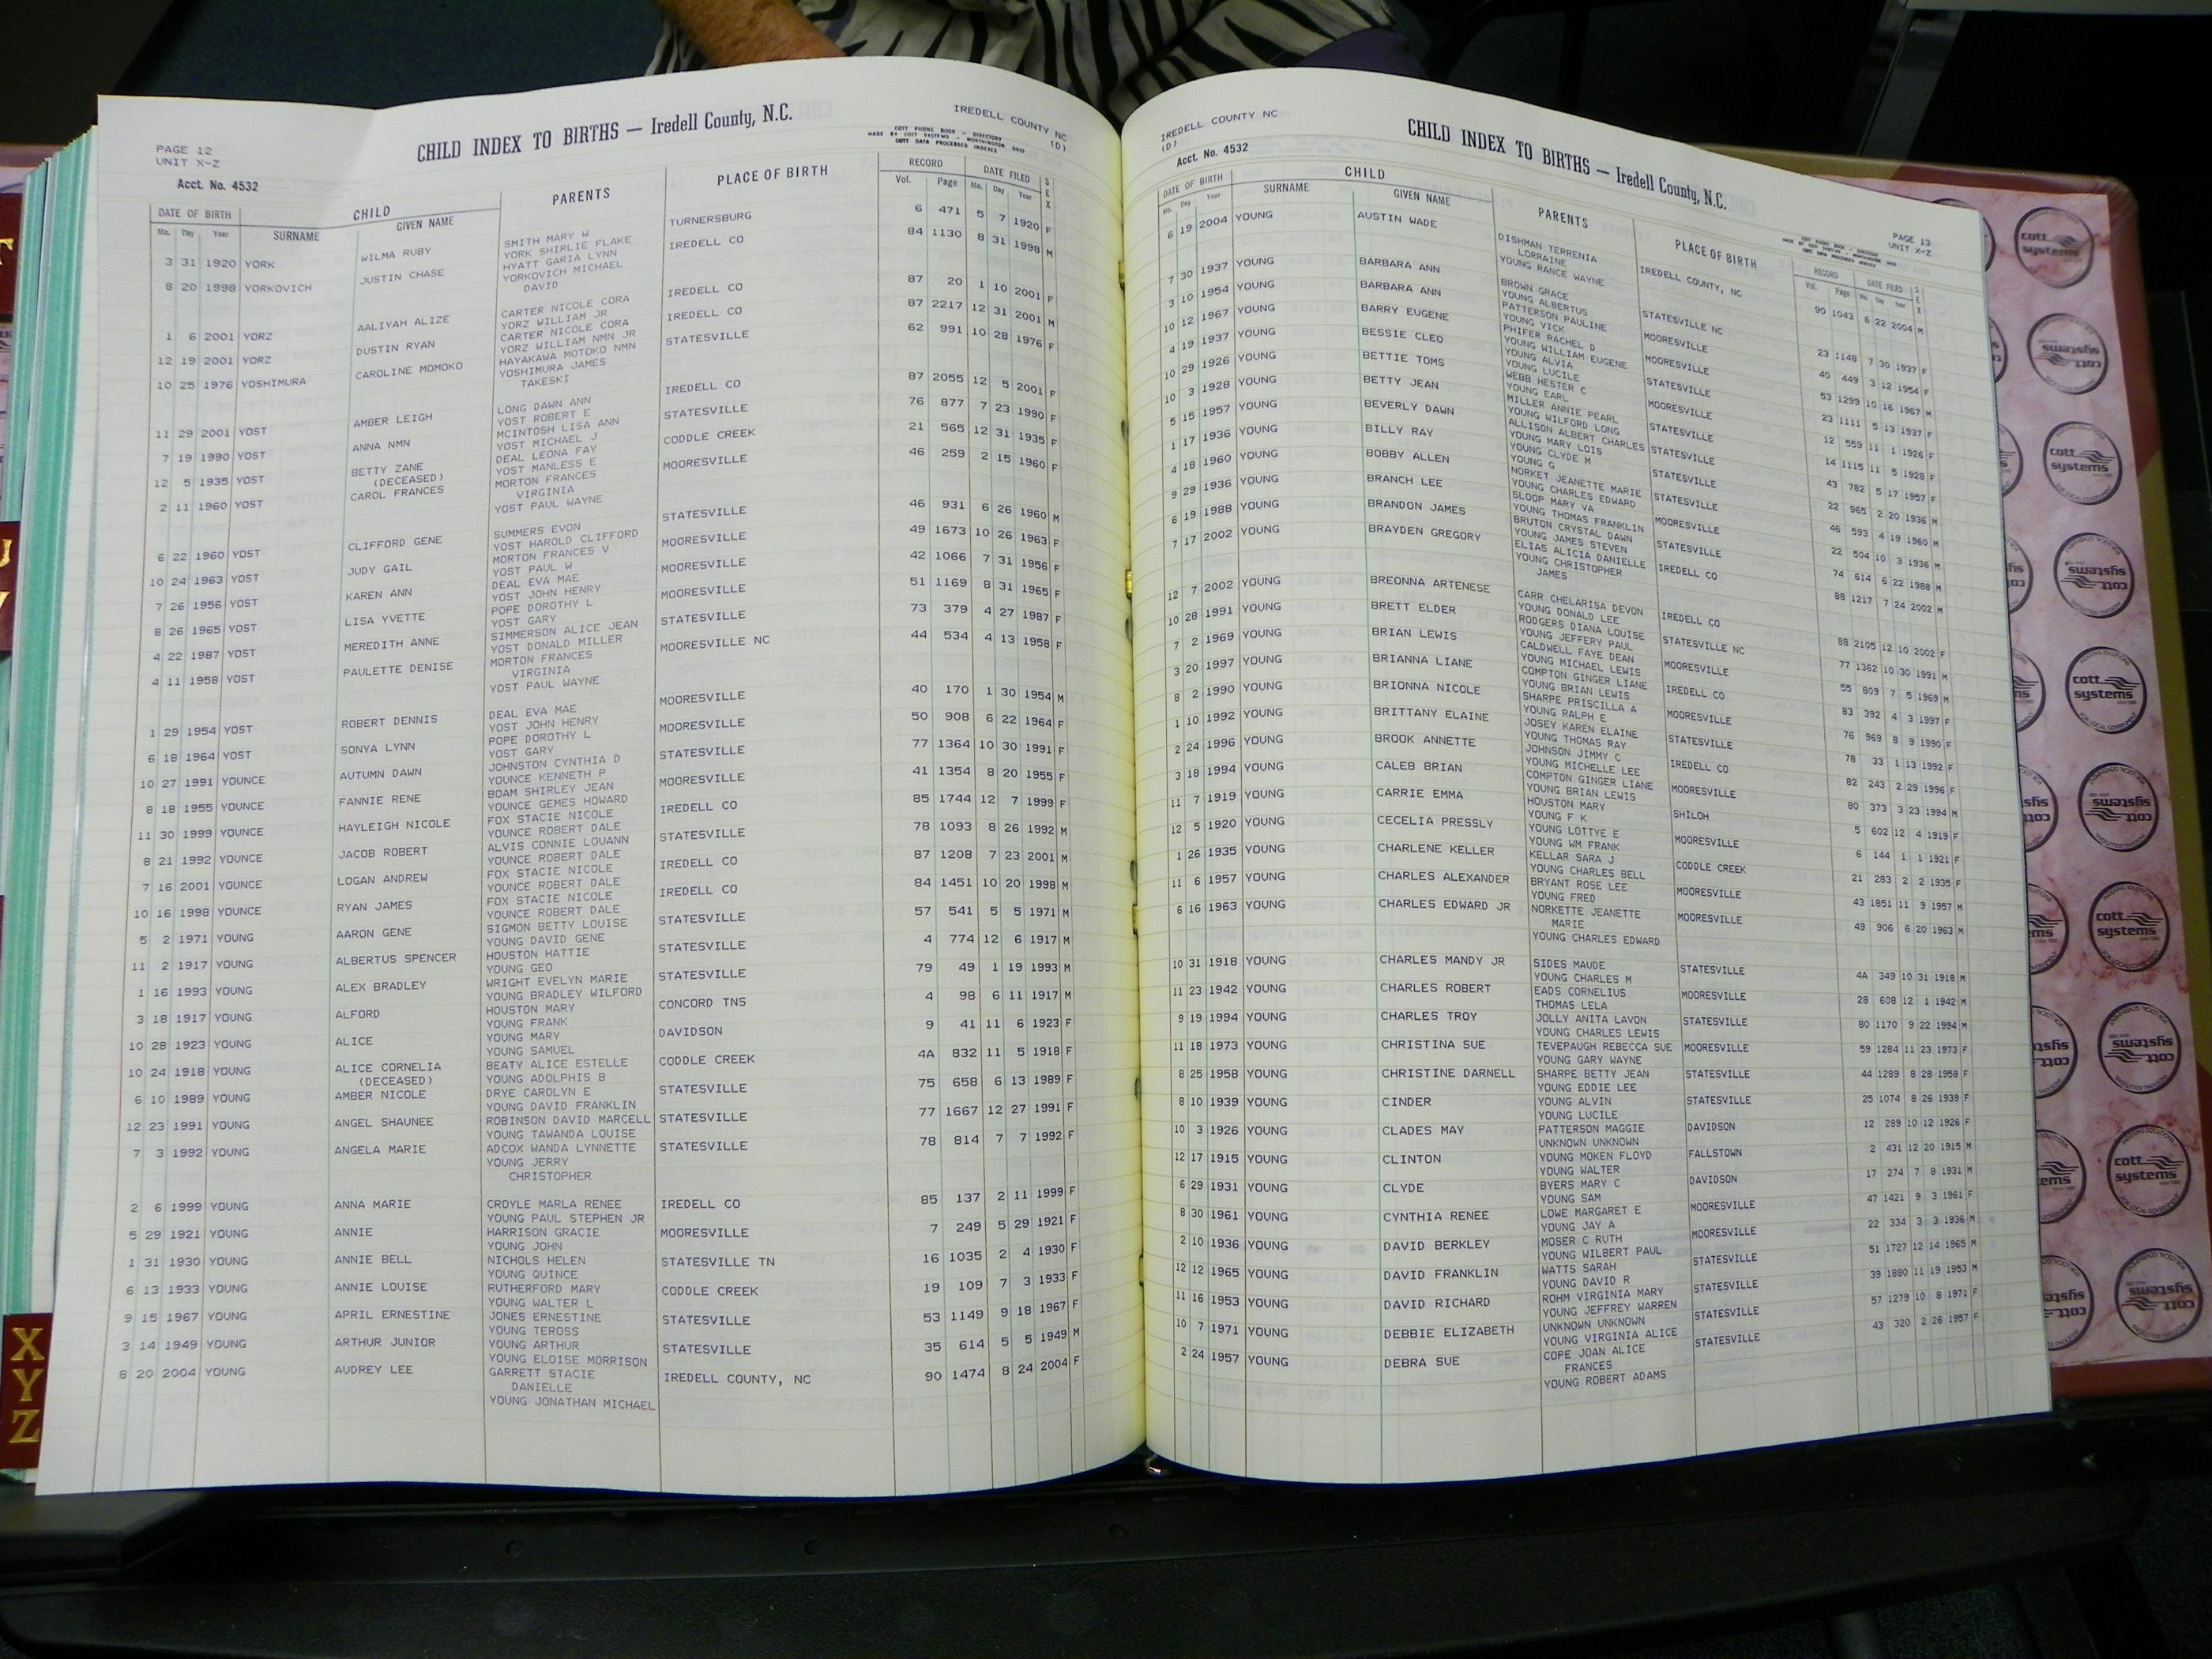 PAGE 12
UNIT X-Z
CHILD INDEX TO BIRTHS — Iredell County, N.C.
IREDELL COUNTY NC
(D)
COTT PHONE BOOK - DIRECTORY
MADE BY COTT SYSTEMS - WORTHINGTON OHIO
COTT DATA PROCESSED INDEXES
Acct. No. 4532
DATE OF BIRTH CHILD PARENTS PLACE OF BIRTH RECORD DATE FILED SEX
Mo. Day Year SURNAME GIVEN NAME Vol. Page Mo. Day Year
3 31 1920 YORK WILMA RUBY SMITH MARY W TURNERSBURG 6 471 5 7 1920 F
YORK SHIRLIE FLAKE
8 20 1998 YORKOVICH JUSTIN CHASE HYATT GARIA LYNN IREDELL CO 84 1130 8 31 1998 M
YORKOVICH MICHAEL
DAVID
1 6 2001 YORZ AALIYAH ALIZE CARTER NICOLE CORA IREDELL CO 87 20 1 10 2001 F
YORZ WILLIAM JR
12 19 2001 YORZ DUSTIN RYAN CARTER NICOLE CORA IREDELL CO 87 2217 12 31 2001 M
YORZ WILLIAM NMN JR
10 25 1976 YOSHIMURA CAROLINE MOMOKO HAYAKAWA MOTOKO NMN STATESVILLE 62 991 10 28 1976 F
YOSHIMURA JAMES
TAKESKI
11 29 2001 YOST AMBER LEIGH LONG DAWN ANN IREDELL CO 87 2055 12 5 2001 F
YOST ROBERT E
7 19 1990 YOST ANNA NMN MCINTOSH LISA ANN STATESVILLE 76 877 7 23 1990 F
YOST MICHAEL J
12 5 1935 YOST BETTY ZANE DEAL LEONA FAY CODDLE CREEK 21 565 12 31 1935 F
(DECEASED) YOST MANLESS E
2 11 1960 YOST CAROL FRANCES MORTON FRANCES MOORESVILLE 46 259 2 15 1960 F
VIRGINIA
YOST PAUL WAYNE
6 22 1960 YOST CLIFFORD GENE SUMMERS EVON STATESVILLE 46 931 6 26 1960 M
YOST HAROLD CLIFFORD
10 24 1963 YOST JUDY GAIL MORTON FRANCES V MOORESVILLE 49 1673 10 26 1963 F
YOST PAUL W
7 26 1956 YOST KAREN ANN DEAL EVA MAE MOORESVILLE 42 1066 7 31 1956 F
YOST JOHN HENRY
8 26 1965 YOST LISA YVETTE POPE DOROTHY L MOORESVILLE 51 1169 8 31 1965 F
YOST GARY
4 22 1987 YOST MEREDITH ANNE SIMMERSON ALICE JEAN STATESVILLE 73 379 4 27 1987 F
YOST DONALD MILLER
4 11 1958 YOST PAULETTE DENISE MORTON FRANCES MOORESVILLE NC 44 534 4 13 1958 F
VIRGINIA
YOST PAUL WAYNE
1 29 1954 YOST ROBERT DENNIS DEAL EVA MAE MOORESVILLE 40 170 1 30 1954 M
YOST JOHN HENRY
6 18 1964 YOST SONYA LYNN POPE DOROTHY L MOORESVILLE 50 908 6 22 1964 F
YOST GARY
10 27 1991 YOUNCE AUTUMN DAWN JOHNSTON CYNTHIA D STATESVILLE 77 1364 10 30 1991 F
YOUNCE KENNETH P
8 18 1955 YOUNCE FANNIE RENE BOAM SHIRLEY JEAN MOORESVILLE 41 1354 8 20 1955 F
YOUNCE GEMES HOWARD
11 30 1999 YOUNCE HAYLEIGH NICOLE FOX STACIE NICOLE IREDELL CO 85 1744 12 7 1999 F
YOUNCE ROBERT DALE
8 21 1992 YOUNCE JACOB ROBERT ALVIS CONNIE LOUANN STATESVILLE 78 1093 8 26 1992 M
YOUNCE ROBERT DALE
7 16 2001 YOUNCE LOGAN ANDREW FOX STACIE NICOLE IREDELL CO 87 1208 7 23 2001 M
YOUNCE ROBERT DALE
10 16 1998 YOUNCE RYAN JAMES FOX STACIE NICOLE IREDELL CO 84 1451 10 20 1998 M
YOUNCE ROBERT DALE
5 2 1971 YOUNG AARON GENE SIGMON BETTY LOUISE STATESVILLE 57 541 5 5 1971 M
YOUNG DAVID GENE
11 2 1917 YOUNG ALBERTUS SPENCER HOUSTON HATTIE STATESVILLE 4 774 12 6 1917 M
YOUNG GEO
1 16 1993 YOUNG ALEX BRADLEY WRIGHT EVELYN MARIE STATESVILLE 79 49 1 19 1993 M
YOUNG BRADLEY WILFORD
3 18 1917 YOUNG ALFORD HOUSTON MARY CONCORD TNS 4 98 6 11 1917 M
YOUNG FRANK
10 28 1923 YOUNG ALICE YOUNG MARY DAVIDSON 9 41 11 6 1923 F
YOUNG SAMUEL
10 24 1918 YOUNG ALICE CORNELIA BEATY ALICE ESTELLE CODDLE CREEK 4A 832 11 5 1918 F
(DECEASED) YOUNG ADOLPHIS B
6 10 1989 YOUNG AMBER NICOLE DRYE CAROLYN E STATESVILLE 75 658 6 13 1989 F
YOUNG DAVID FRANKLIN
12 23 1991 YOUNG ANGEL SHAUNEE ROBINSON DAVID MARCELL STATESVILLE 77 1667 12 27 1991 F
YOUNG TAWANDA LOUISE
7 3 1992 YOUNG ANGELA MARIE ADCOX WANDA LYNNETTE STATESVILLE 78 814 7 7 1992 F
YOUNG JERRY
CHRISTOPHER
2 6 1999 YOUNG ANNA MARIE CROYLE MARLA RENEE IREDELL CO 85 137 2 11 1999 F
YOUNG PAUL STEPHEN JR
5 29 1921 YOUNG ANNIE HARRISON GRACIE MOORESVILLE 7 249 5 29 1921 F
YOUNG JOHN
1 31 1930 YOUNG ANNIE BELL NICHOLS HELEN STATESVILLE TN 16 1035 2 4 1930 F
YOUNG QUINCE
6 13 1933 YOUNG ANNIE LOUISE RUTHERFORD MARY CODDLE CREEK 19 109 7 3 1933 F
YOUNG WALTER L
9 15 1967 YOUNG APRIL ERNESTINE JONES ERNESTINE STATESVILLE 53 1149 9 18 1967 F
YOUNG TEROSS
3 14 1949 YOUNG ARTHUR JUNIOR YOUNG ARTHUR STATESVILLE 35 614 5 5 1949 M
YOUNG ELOISE MORRISON
8 20 2004 YOUNG AUDREY LEE GARRETT STACIE IREDELL COUNTY, NC 90 1474 8 24 2004 F
DANIELLE
YOUNG JONATHAN MICHAEL
X
Y
Z
IREDELL COUNTY NC
(D)
CHILD INDEX TO BIRTHS — Iredell County, N.C.
PAGE 13
UNIT X-Z
Acct. No. 4532
DATE OF BIRTH CHILD PARENTS PLACE OF BIRTH RECORD DATE FILED SEX
Mo. Day Year SURNAME GIVEN NAME Vol. Page Mo. Day Year
6 19 2004 YOUNG AUSTIN WADE DISHMAN TERRENIA IREDELL COUNTY, NC 90 1043 6 22 2004 M
LORRAINE
YOUNG RANCE WAYNE
7 30 1937 YOUNG BARBARA ANN BROWN GRACE STATESVILLE NC 23 1148 7 30 1937 F
YOUNG ALBERTUS
3 10 1954 YOUNG BARBARA ANN PATTERSON PAULINE MOORESVILLE 40 449 3 12 1954 F
YOUNG VICK
10 12 1967 YOUNG BARRY EUGENE PHIFER RACHEL D MOORESVILLE 53 1299 10 16 1967 M
YOUNG WILLIAM EUGENE
4 19 1937 YOUNG BESSIE CLEO YOUNG ALVIA STATESVILLE 23 1111 5 13 1937 F
YOUNG LUCILE
10 29 1926 YOUNG BETTIE TOMS WEBB HESTER C MOORESVILLE 12 559 11 1 1926 F
YOUNG EARL
10 3 1928 YOUNG BETTY JEAN MILLER ANNIE PEARL STATESVILLE 14 1115 11 5 1928 F
YOUNG WILFORD LONG
5 15 1957 YOUNG BEVERLY DAWN ALLISON ALBERT CHARLES STATESVILLE 43 782 5 17 1957 F
YOUNG MARY LOIS
1 17 1936 YOUNG BILLY RAY YOUNG CLYDE M STATESVILLE 22 965 2 20 1936 M
YOUNG G
4 18 1960 YOUNG BOBBY ALLEN NORKET JEANETTE MARIE STATESVILLE 46 593 4 19 1960 M
YOUNG CHARLES EDWARD
9 29 1936 YOUNG BRANCH LEE SLOOP MARY VA MOORESVILLE 22 504 10 3 1936 M
YOUNG THOMAS FRANKLIN
6 19 1988 YOUNG BRANDON JAMES BRUTON CRYSTAL DAWN STATESVILLE 74 614 6 22 1988 M
YOUNG JAMES STEVEN
7 17 2002 YOUNG BRAYDEN GREGORY ELIAS ALICIA DANIELLE IREDELL CO 88 1217 7 24 2002 M
YOUNG CHRISTOPHER
JAMES
12 7 2002 YOUNG BREONNA ARTENESE CARR CHELARISA DEVON IREDELL CO 88 2105 12 10 2002 F
YOUNG DONALD LEE
10 28 1991 YOUNG BRETT ELDER RODGERS DIANA LOUISE STATESVILLE NC 77 1362 10 30 1991 M
YOUNG JEFFERY PAUL
7 2 1969 YOUNG BRIAN LEWIS CALDWELL FAYE DEAN MOORESVILLE 55 809 7 5 1969 M
YOUNG MICHAEL LEWIS
3 20 1997 YOUNG BRIANNA LIANE COMPTON GINGER LIANE IREDELL CO 83 392 4 3 1997 F
YOUNG BRIAN LEWIS
8 2 1990 YOUNG BRIONNA NICOLE SHARPE PRISCILLA A MOORESVILLE 76 969 8 9 1990 F
YOUNG RALPH E
1 10 1992 YOUNG BRITTANY ELAINE JOSEY KAREN ELAINE STATESVILLE 78 33 1 13 1992 F
YOUNG THOMAS RAY
2 24 1996 YOUNG BROOK ANNETTE JOHNSON JIMMY C IREDELL CO 82 243 2 29 1996 F
YOUNG MICHELLE LEE
3 18 1994 YOUNG CALEB BRIAN COMPTON GINGER LIANE MOORESVILLE 80 373 3 23 1994 M
YOUNG BRIAN LEWIS
11 7 1919 YOUNG CARRIE EMMA HOUSTON MARY SHILOH 5 602 12 4 1919 F
YOUNG F K
12 5 1920 YOUNG CECELIA PRESSLY YOUNG LOTTYE E MOORESVILLE 6 144 1 1 1921 F
YOUNG WM FRANK
1 26 1935 YOUNG CHARLENE KELLER KELLAR SARA J CODDLE CREEK 21 283 2 2 1935 F
YOUNG CHARLES BELL
11 6 1957 YOUNG CHARLES ALEXANDER BRYANT ROSE LEE MOORESVILLE 43 1851 11 9 1957 M
YOUNG FRED
6 16 1963 YOUNG CHARLES EDWARD JR NORKETTE JEANETTE MOORESVILLE 49 906 6 20 1963 M
MARIE
YOUNG CHARLES EDWARD
10 31 1918 YOUNG CHARLES MANDY JR SIDES MAUDE STATESVILLE 4A 349 10 31 1918 M
YOUNG CHARLES M
11 23 1942 YOUNG CHARLES ROBERT EADS CORNELIUS MOORESVILLE 28 608 12 1 1942 M
THOMAS LELA
9 19 1994 YOUNG CHARLES TROY JOLLY ANITA LAVON STATESVILLE 80 1170 9 22 1994 M
YOUNG CHARLES LEWIS
11 18 1973 YOUNG CHRISTINA SUE TEVEPAUGH REBECCA SUE MOORESVILLE 59 1284 11 23 1973 F
YOUNG GARY WAYNE
8 25 1958 YOUNG CHRISTINE DARNELL SHARPE BETTY JEAN STATESVILLE 44 1289 8 28 1958 F
YOUNG EDDIE LEE
8 10 1939 YOUNG CINDER YOUNG ALVIN STATESVILLE 25 1074 8 26 1939 F
YOUNG LUCILE
10 3 1926 YOUNG CLADES MAY PATTERSON MAGGIE DAVIDSON 12 289 10 12 1926 F
UNKNOWN UNKNOWN
12 17 1915 YOUNG CLINTON YOUNG MOKEN FLOYD FALLSTOWN 2 431 12 20 1915 M
YOUNG WALTER
6 29 1931 YOUNG CLYDE BYERS MARY C DAVIDSON 17 274 7 8 1931 M
YOUNG SAM
8 30 1961 YOUNG CYNTHIA RENEE LOWE MARGARET E MOORESVILLE 47 1421 9 3 1961 F
YOUNG JAY A
2 10 1936 YOUNG DAVID BERKLEY MOSER C RUTH MOORESVILLE 22 334 3 3 1936 M
YOUNG WILBERT PAUL
12 12 1965 YOUNG DAVID FRANKLIN WATTS SARAH STATESVILLE 51 1727 12 14 1965 M
YOUNG DAVID R
11 16 1953 YOUNG DAVID RICHARD ROHM VIRGINIA MARY STATESVILLE 39 1880 11 19 1953 M
YOUNG JEFFREY WARREN
10 7 1971 YOUNG DEBBIE ELIZABETH UNKNOWN UNKNOWN STATESVILLE 57 1279 10 8 1971 F
YOUNG VIRGINIA ALICE
2 24 1957 YOUNG DEBRA SUE COPE JOAN ALICE STATESVILLE 43 320 2 26 1957 F
FRANCES
YOUNG ROBERT ADAMS
cott
systems